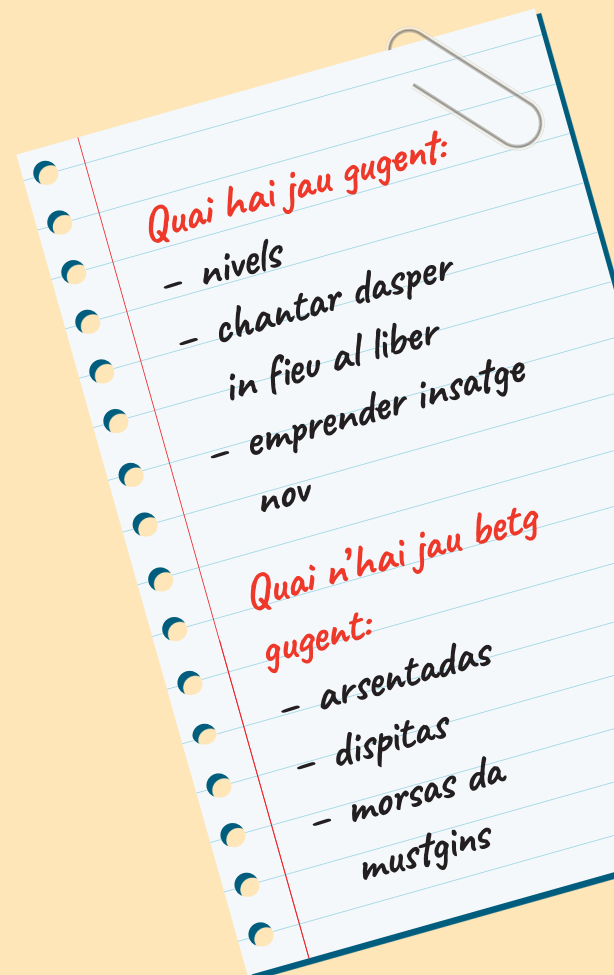 Quai hai jau gugent:
– nivels
– chantar dasper
in fieu al liber
– emprender insatge
nov
Quai n’hai jau betg
gugent:
– arsentadas
– dispitas
– morsas da
mustgins